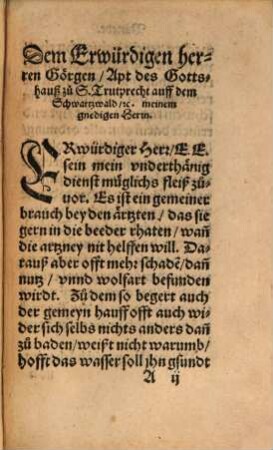 Dem Erwürdigen her-
ren Görgen / Apt des Gotts-
hauß zů S. Trutprecht auff dem
Schwartzwald / ꝛc. meinem
gnedigen Herin.
ERwürdiger Herr / E. E.
sein mein vnderthänig
dienst müglichs fleiß zů-
uor. Es ist ein gemeiner
brauch bey den ärtzten / das sie
gern in die beeder rhaten / wañ
die artzney nit helffen will. Da-
rauß aber offt mehr schadẽ / dañ
nutz / vnnd wolfart befunden
wirdt. Zů dem so begert auch
der gemeyn hauff offt auch wi-
der sich selbs nichts anders dañ
zů baden / weißt nicht warumb /
hofft das wasser soll jhn gsundt
A ij